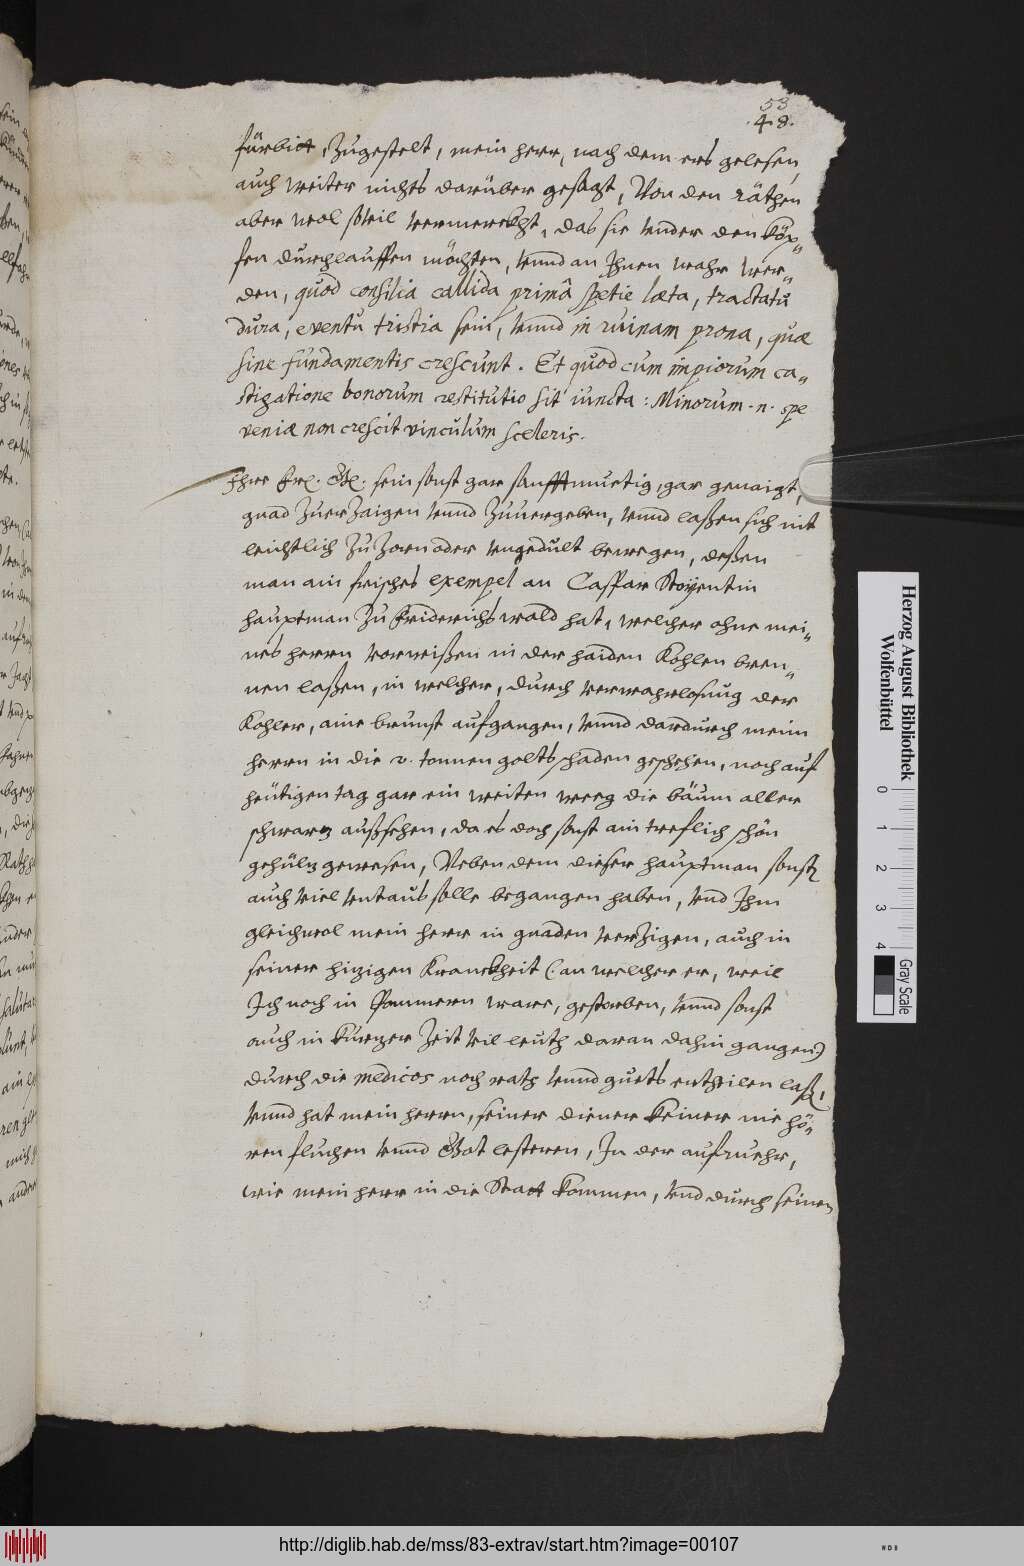 53
.48.
fürbitt, Zugestelt, mein herr, nach dem ers gelesen,
auch weiter nichts darüber gesagt, Von den räthen
aber wol souil vermerckht, das sie vnder den köp„
fen durchlauffen möchten, vnnd an Ihnen wahr wer„
den, quod consilia callida primâ spetie læta, tractatu
dura, eventu tristia sein, vnnd in ruinam prona, quæ
sine fundamentis crescunt. Et quod cum impiorum ca„
stigatione bonorum restitutio sit iuncta: Minorum .n. spe
veniæ non crescit vinculum sceleris.
Ihre Fr. G. sein sonst gar sanfftmuetig, gar genaigt,
gnad Zuerzaigen vnnd Zuuergeben, vnnd laßen sich nit
leichtlich Zu Zorn oder vngedult bewegen, deßen
man ain frisches exempel an Caspar Stoyentin
hauptman Zu Friderichswald hat, welcher ohne mei„
nes herrn vorweißen in der haiden Kohlen bren„
nen laßen, in welcher, durch verwahrlosung der
Kohler, aine brunst aufgangen, vnnd dardurch meim
herrn in die v. tonnen golts schaden geschehen, noch auf
heütigen tag gar ein weiten weeg die bäum aller
schwartz außsehen, da es doch sonst ain treflich schön
gehültz gewesen, Neben dem dieser hauptman sonst
auch viel vntaus solle begangen haben, vnd Ihm
gleichwol mein herr in gnaden verzigen, auch in
seiner hitzigen Kranckheit (: an welcher er, weil
Ich noch in Pommern ware, gestorben, vnnd sonst
auch in kurtzer Zeit vil leuth daran dahin gangen)
durch die medicos noch rath vnnd guets erthailen laß.,
vnnd hat mein herrn, seiner diener keiner nie hö„
ren fluchen vnnd Got lesteren, In der aufruehr,
wie mein herr in die Statt kommen, vnd durch seinen
Herzog August Bibliothek
Wolfenbüttel
0 1 2 3 4
Gray Scale
http://diglib.hab.de/mss/83-extrav/start.htm?image=00107